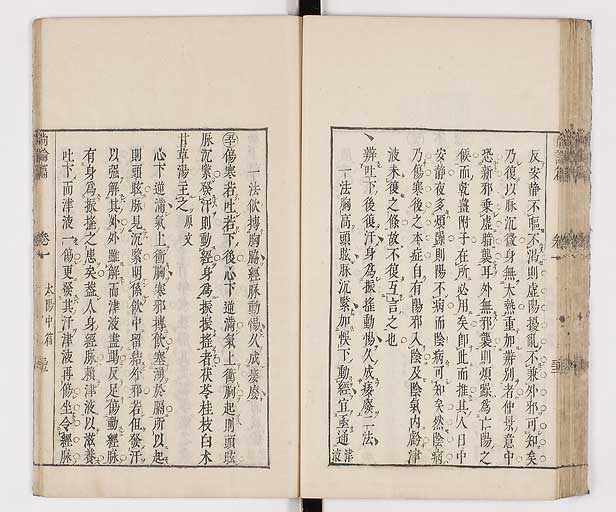 反安靜不嘔不渴則虛陽擾亂不兼外邪可知矣
乃復以脉沉微身無大熱重加辨別者仲景意中
恐新邪乘虛暗襲耳外無邪襲則煩躁為亡陽之
候而乾薑附子在所必用矣即此而推其人日中
安靜夜多煩躁則陽不病而陰病可知矣然陰病
乃傷寒後之本症自有陽邪入陰及陰氣內虧津
液未復之條故不復互言之也
辨吐下後復汗身為振搖動惕久成痿廢二法
一法胸高頭眩脉沉緊加悞下動經宜亟通津液
一法飲搏胸膈經脉動惕久成痿廢
傷寒若吐若下後心下逆滿氣上衝胸起則頭眩
脉沉緊發汗則動經身為振振搖者茯苓桂枝白术
甘草湯主之 原文
心下逆滿氣上衝胸寒邪搏飲塞湧於膈所以起
則頭眩脉見沉緊明係飲中留結外邪若但發汗
以強解其外外雖解而津液盡竭反足傷動經脉
有身為振搖之患矣蓋人身經脉賴津液以滋養
吐下而津液一傷更發其汗津液再傷坐令經脉
尚論篇 卷一 太陽中篇